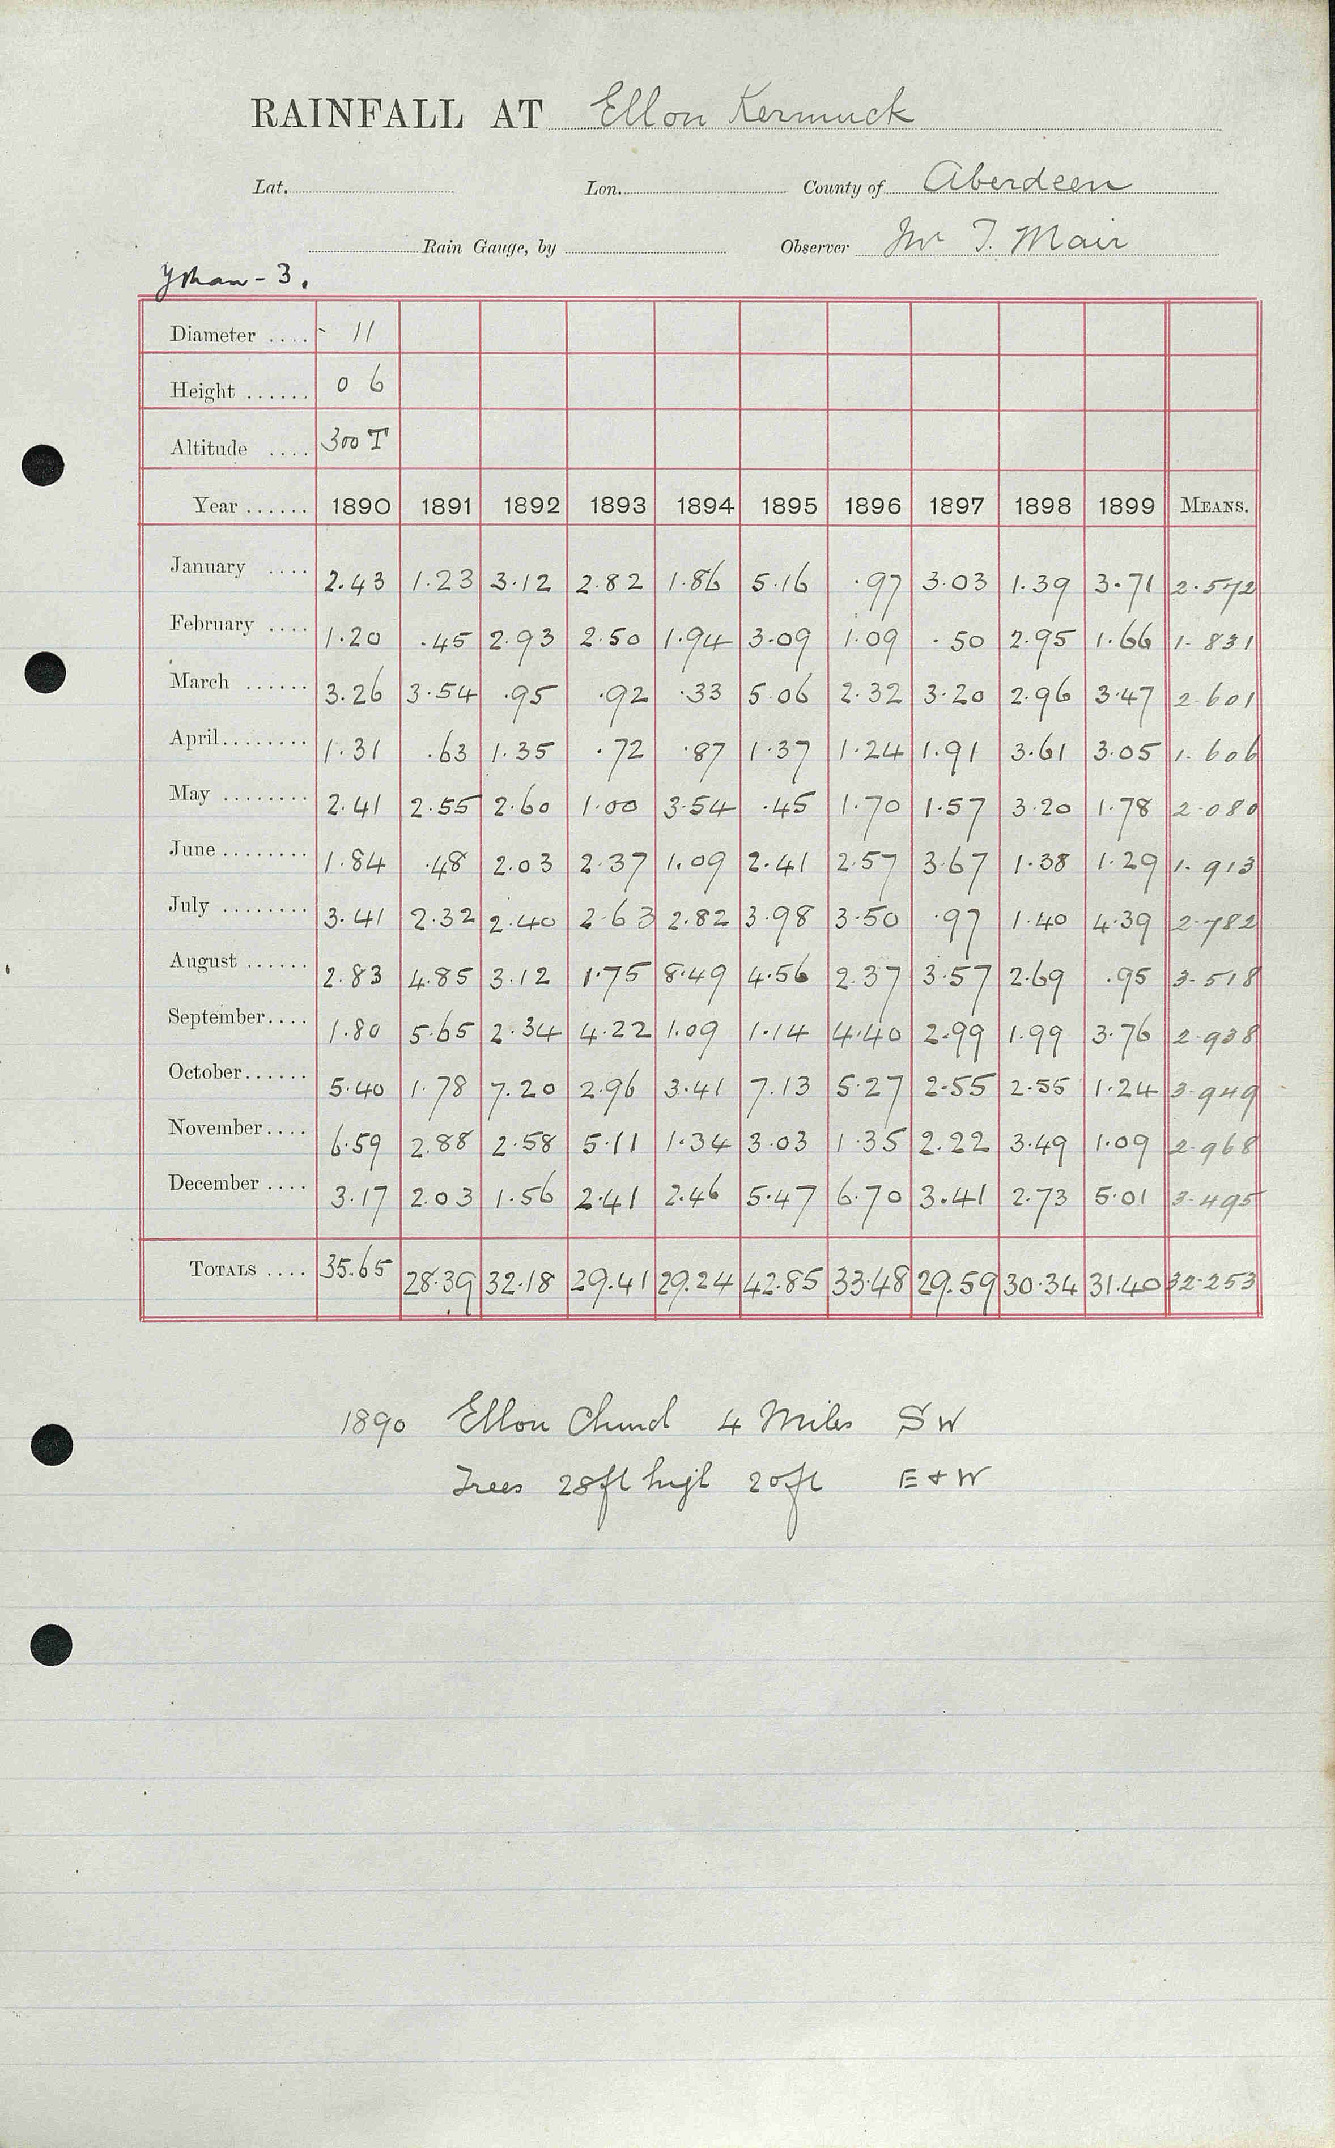 RAINFALL AT Ellon Kermuck
Lat. Lon. County of Aberdeen
Rain Gauge, by Observer Mr T. Mair
Ythan - 3.
Diameter .... - 11
Height ...... 0 6
Altitude .... 300 T
Year ...... 1890 1891 1892 1893 1894 1895 1896 1897 1898 1899 MEANS.
January .... 2.43 1.23 3.12 2.82 1.86 5.16 .97 3.03 1.39 3.71 2.572
February .... 1.20 .45 2.93 2.50 1.94 3.09 1.09 .50 2.95 1.66 1.831
March ...... 3.26 3.54 .95 .92 .33 5.06 2.32 3.20 2.96 3.47 2.601
April........ 1.31 .63 1.35 .72 .87 1.37 1.24 1.91 3.61 3.05 1.606
May ........ 2.41 2.55 2.60 1.00 3.54 .45 1.70 1.57 3.20 1.78 2.080
June ........ 1.84 .48 2.03 2.37 1.09 2.41 2.57 3.67 1.38 1.29 1.913
July ........ 3.41 2.32 2.40 2.63 2.82 3.98 3.50 .97 1.40 4.39 2.782
August ...... 2.83 4.85 3.12 1.75 8.49 4.56 2.37 3.57 2.69 .95 3.518
September.... 1.80 5.65 2.34 4.22 1.09 1.14 4.40 2.99 1.99 3.76 2.938
October...... 5.40 1.78 7.20 2.96 3.41 7.13 5.27 2.55 2.55 1.24 3.949
November.... 6.59 2.88 2.58 5.11 1.34 3.03 1.35 2.22 3.49 1.09 2.968
December .... 3.17 2.03 1.56 2.41 2.46 5.47 6.70 3.41 2.73 5.01 3.495
TOTALS .... 35.65 28.39 32.18 29.41 29.24 42.85 33.48 29.59 30.34 31.40 32.253
1890 Ellon Church 4 Miles SW
Trees 28ft high 20ft E & W